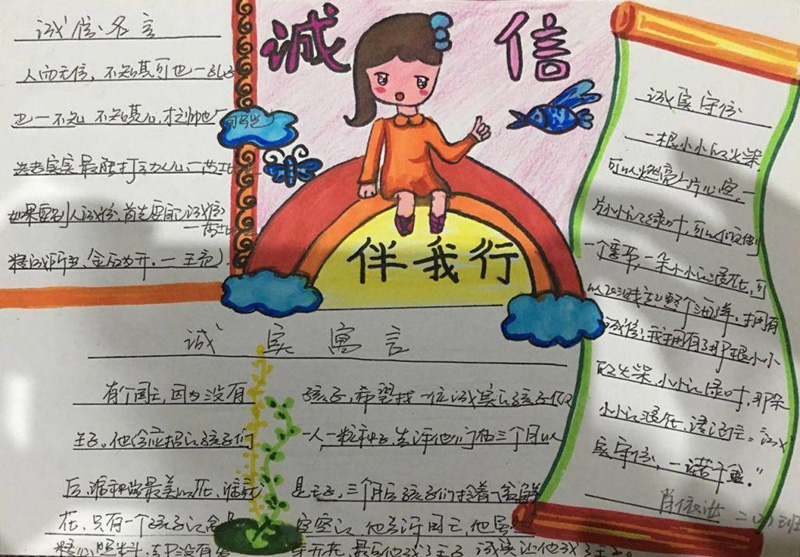 诚信
伴我行
诚信名言
人而无信，不知其可也一孔子
也一不知 不知其心
诚老实实最能打动人心
如果要别人诚信，首先要自己诚信
精诚所至，金石为开，一王充
诚实寓言
有个国王，因为没有孩子，希望找一位诚实的孩子做
王子。他给应招的孩子们一人一粒种子，告诉他们在三个月以
后，谁种出最美的花，谁就是王子，三个月后孩子们捧着鲜
花，只有一个孩子的空空的，他告诉国王，他
精心照料，却没有开花，最后他成了王子，诚实让他成了王子
诚实守信
一根小小的火柴，
可以燃亮一片心空，一
片小小的绿叶，可以倾倒
一个季节，一朵小小的浪花，可
以飞溅起整个海洋，拥有
诚信，我拥有了那根小小
的火柴，小小的绿叶，那朵
小小的浪花，请记住。诚
实守信，一诺千金。"
二（3）班